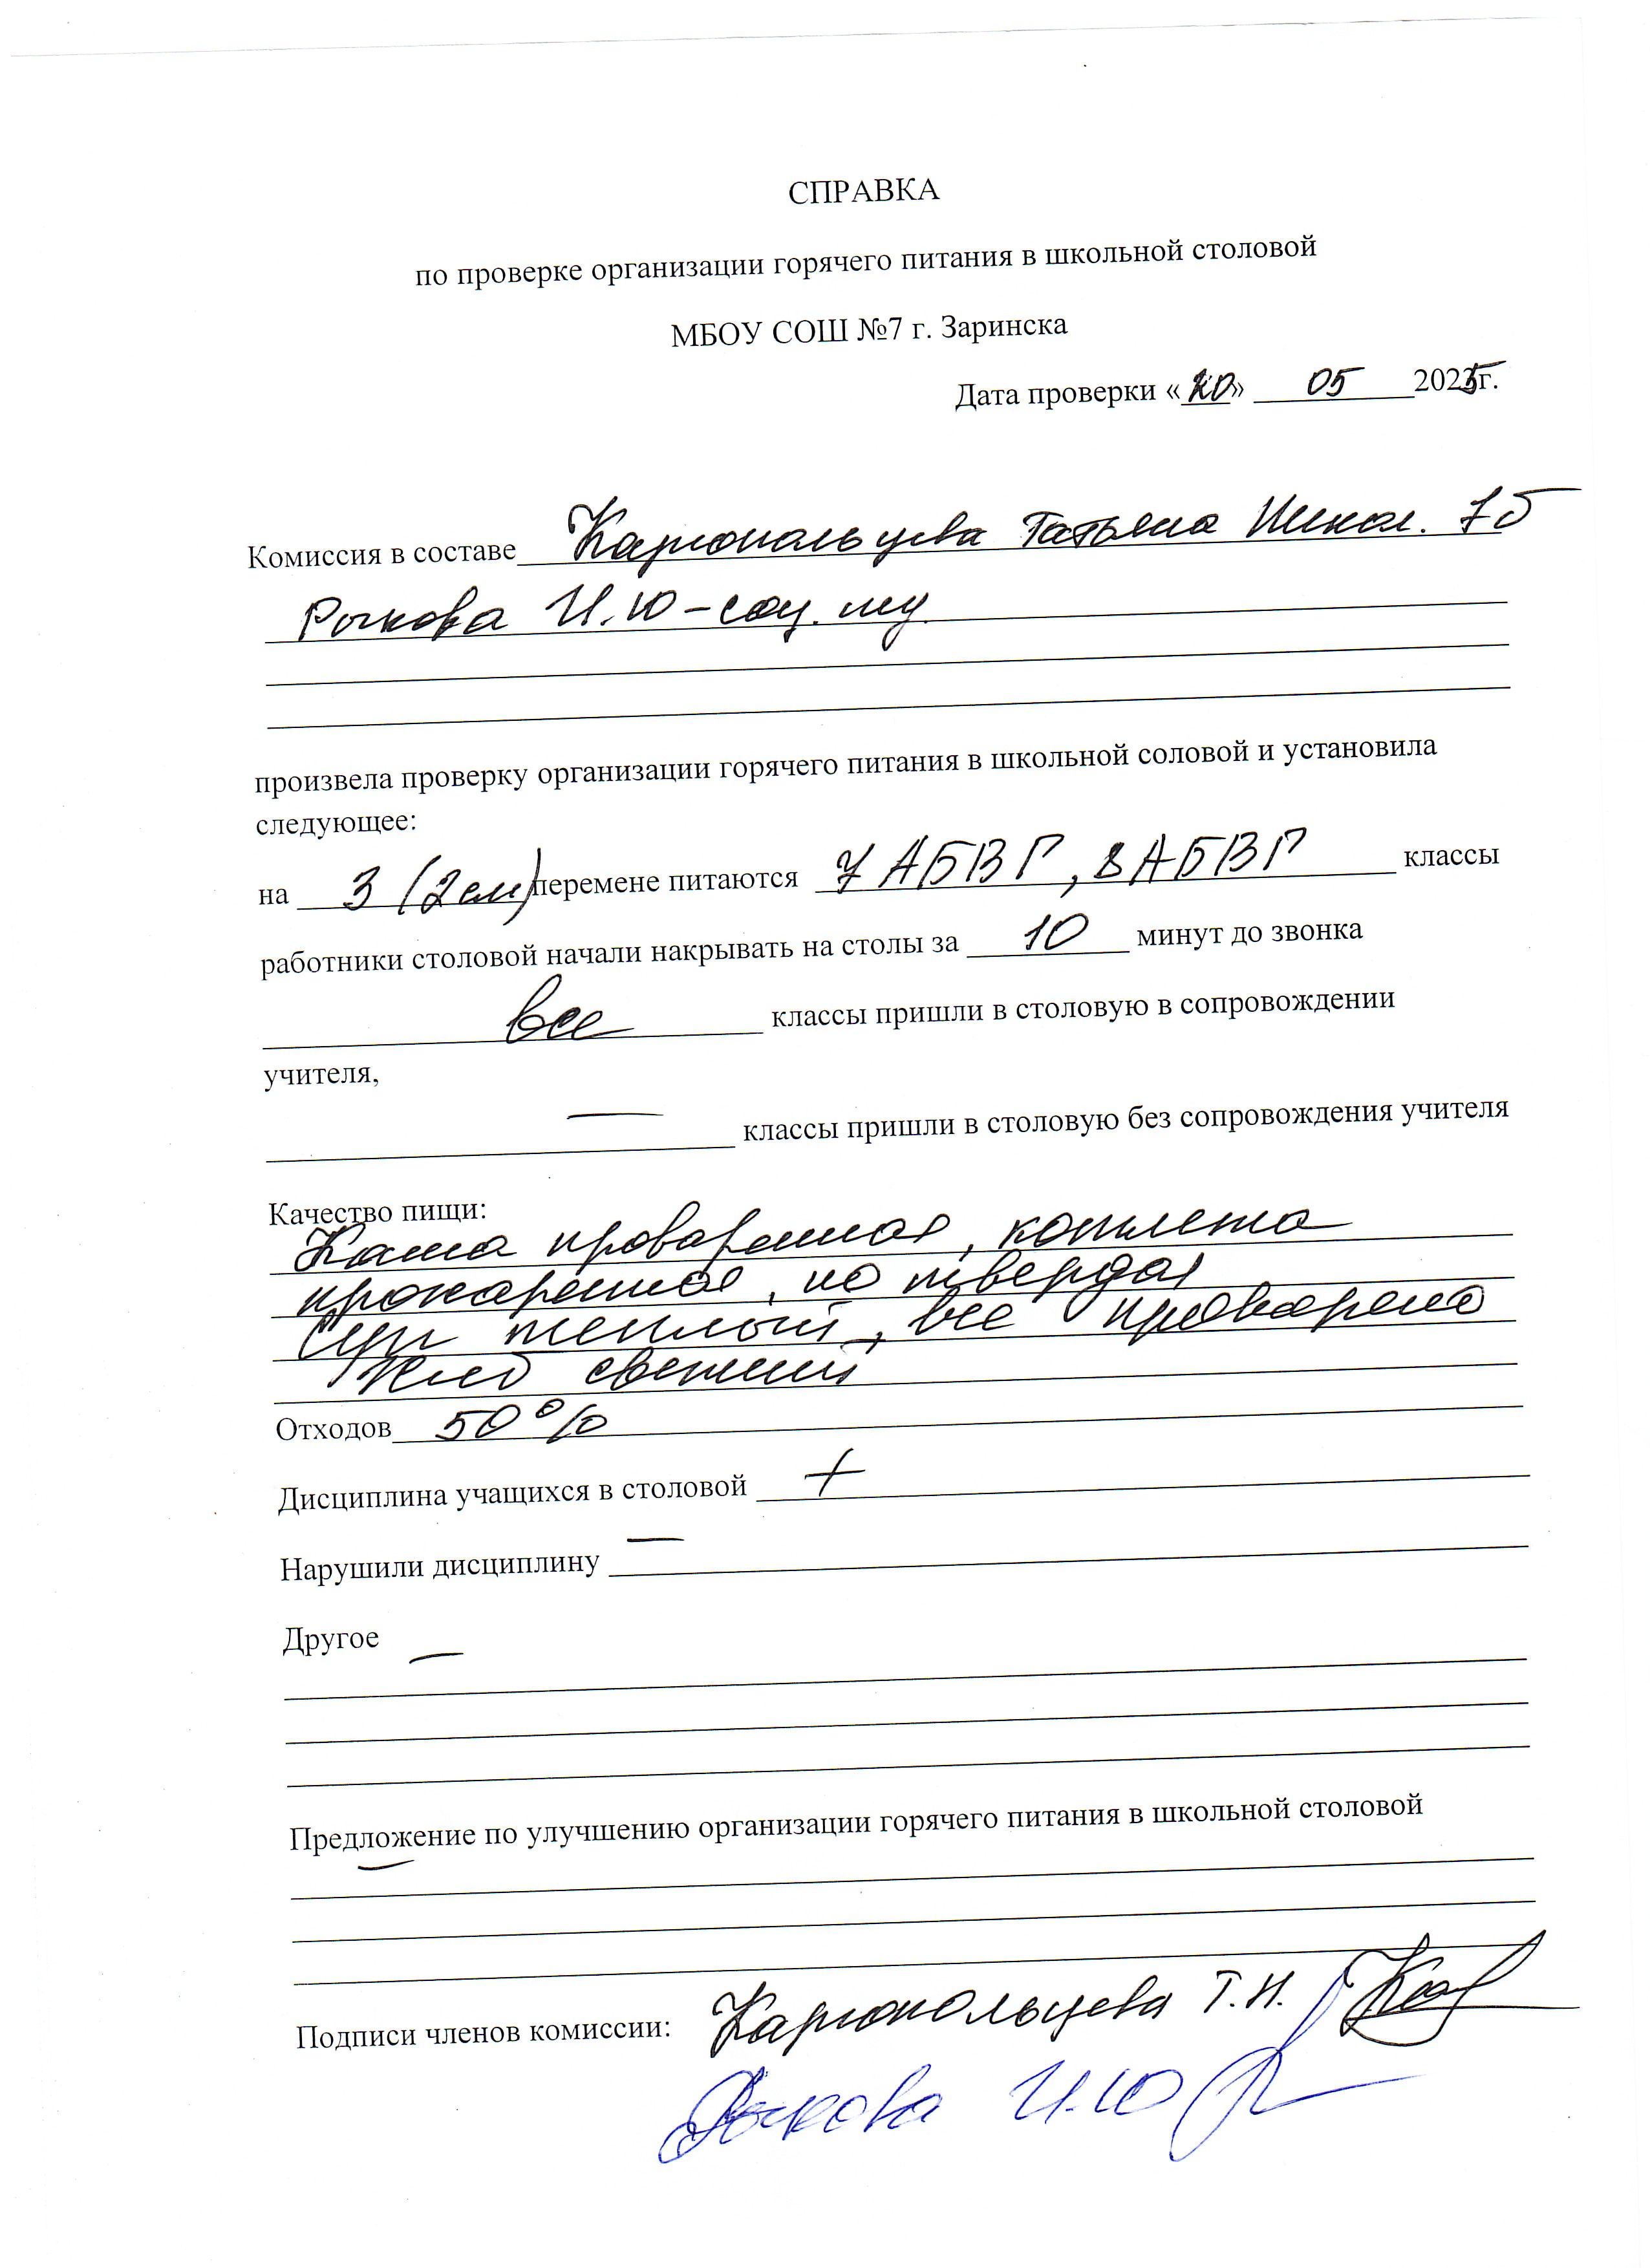 СПРАВКА
по проверке организации горячего питания в школьной столовой
МБОУ СОШ №7 г. Заринска
Дата проверки «20» 05 2025г.
Комиссия в составе Каргопольцева Татьяна Никол. 7б
Рыкова И.Ю - соц. пед.
произвела проверку организации горячего питания в школьной соловой и установила
следующее:
на 3 (2см) перемене питаются 7 АБВГ, 8 АБВГ классы
работники столовой начали накрывать на столы за 10 минут до звонка
все классы пришли в столовую в сопровождении
учителя,
— классы пришли в столовую без сопровождения учителя
Качество пищи:
Каша проваренная, котлета
прожаренная, но твердая
Суп теплый, все проварено
Хлеб свежий
Отходов 50%
Дисциплина учащихся в столовой +
Нарушили дисциплину —
Другое —
Предложение по улучшению организации горячего питания в школьной столовой
—
Подписи членов комиссии: Каргопольцева Т.Н.
Рыкова И.Ю